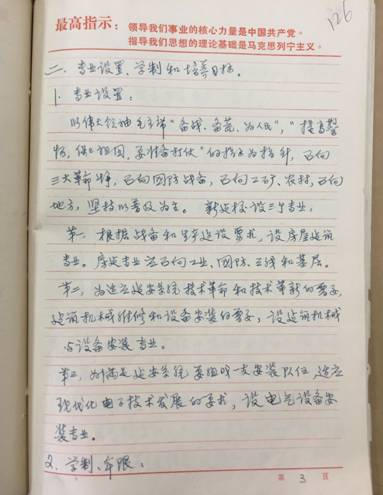 126
最高指示：
领导我们事业的核心力量是中国共产党。
指导我们思想的理论基础是马克思列宁主义。
二、专业设置、学制和培养目标。
1. 专业设置：
以伟大领袖毛主席“备战、备荒、为人民”，“提高警
惕，保卫祖国，要准备打仗”的指示为指针，面向
三大革命斗争，面向国防战备，面向工矿、农村，面向
地方，坚持以普及为主。 新建校设三个专业：
第一，根据战备和生产建设要求，设房屋建筑
专业。房建专业面向工业、国防、三线和基层。
第二，为适应建安系统技术革命和技术革新的需要，
建筑机械维修和设备安装的需要，设建筑机械
与设备安装专业。
第三，为满足建安系统要组成一支安装队伍，适应
现代化电子技术发展的要求，设电气设备安
装专业。
2. 学制、年限：
第 3 页